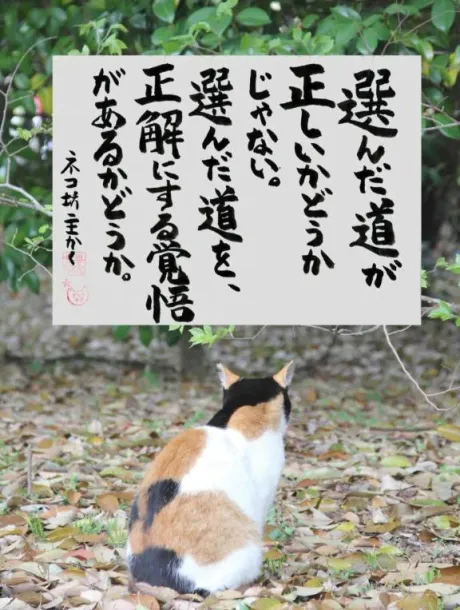 選んだ道が
正しいかどうか
じゃない。
選んだ道を、
正解にする覚悟
があるかどうか。
ネコ坊主かく